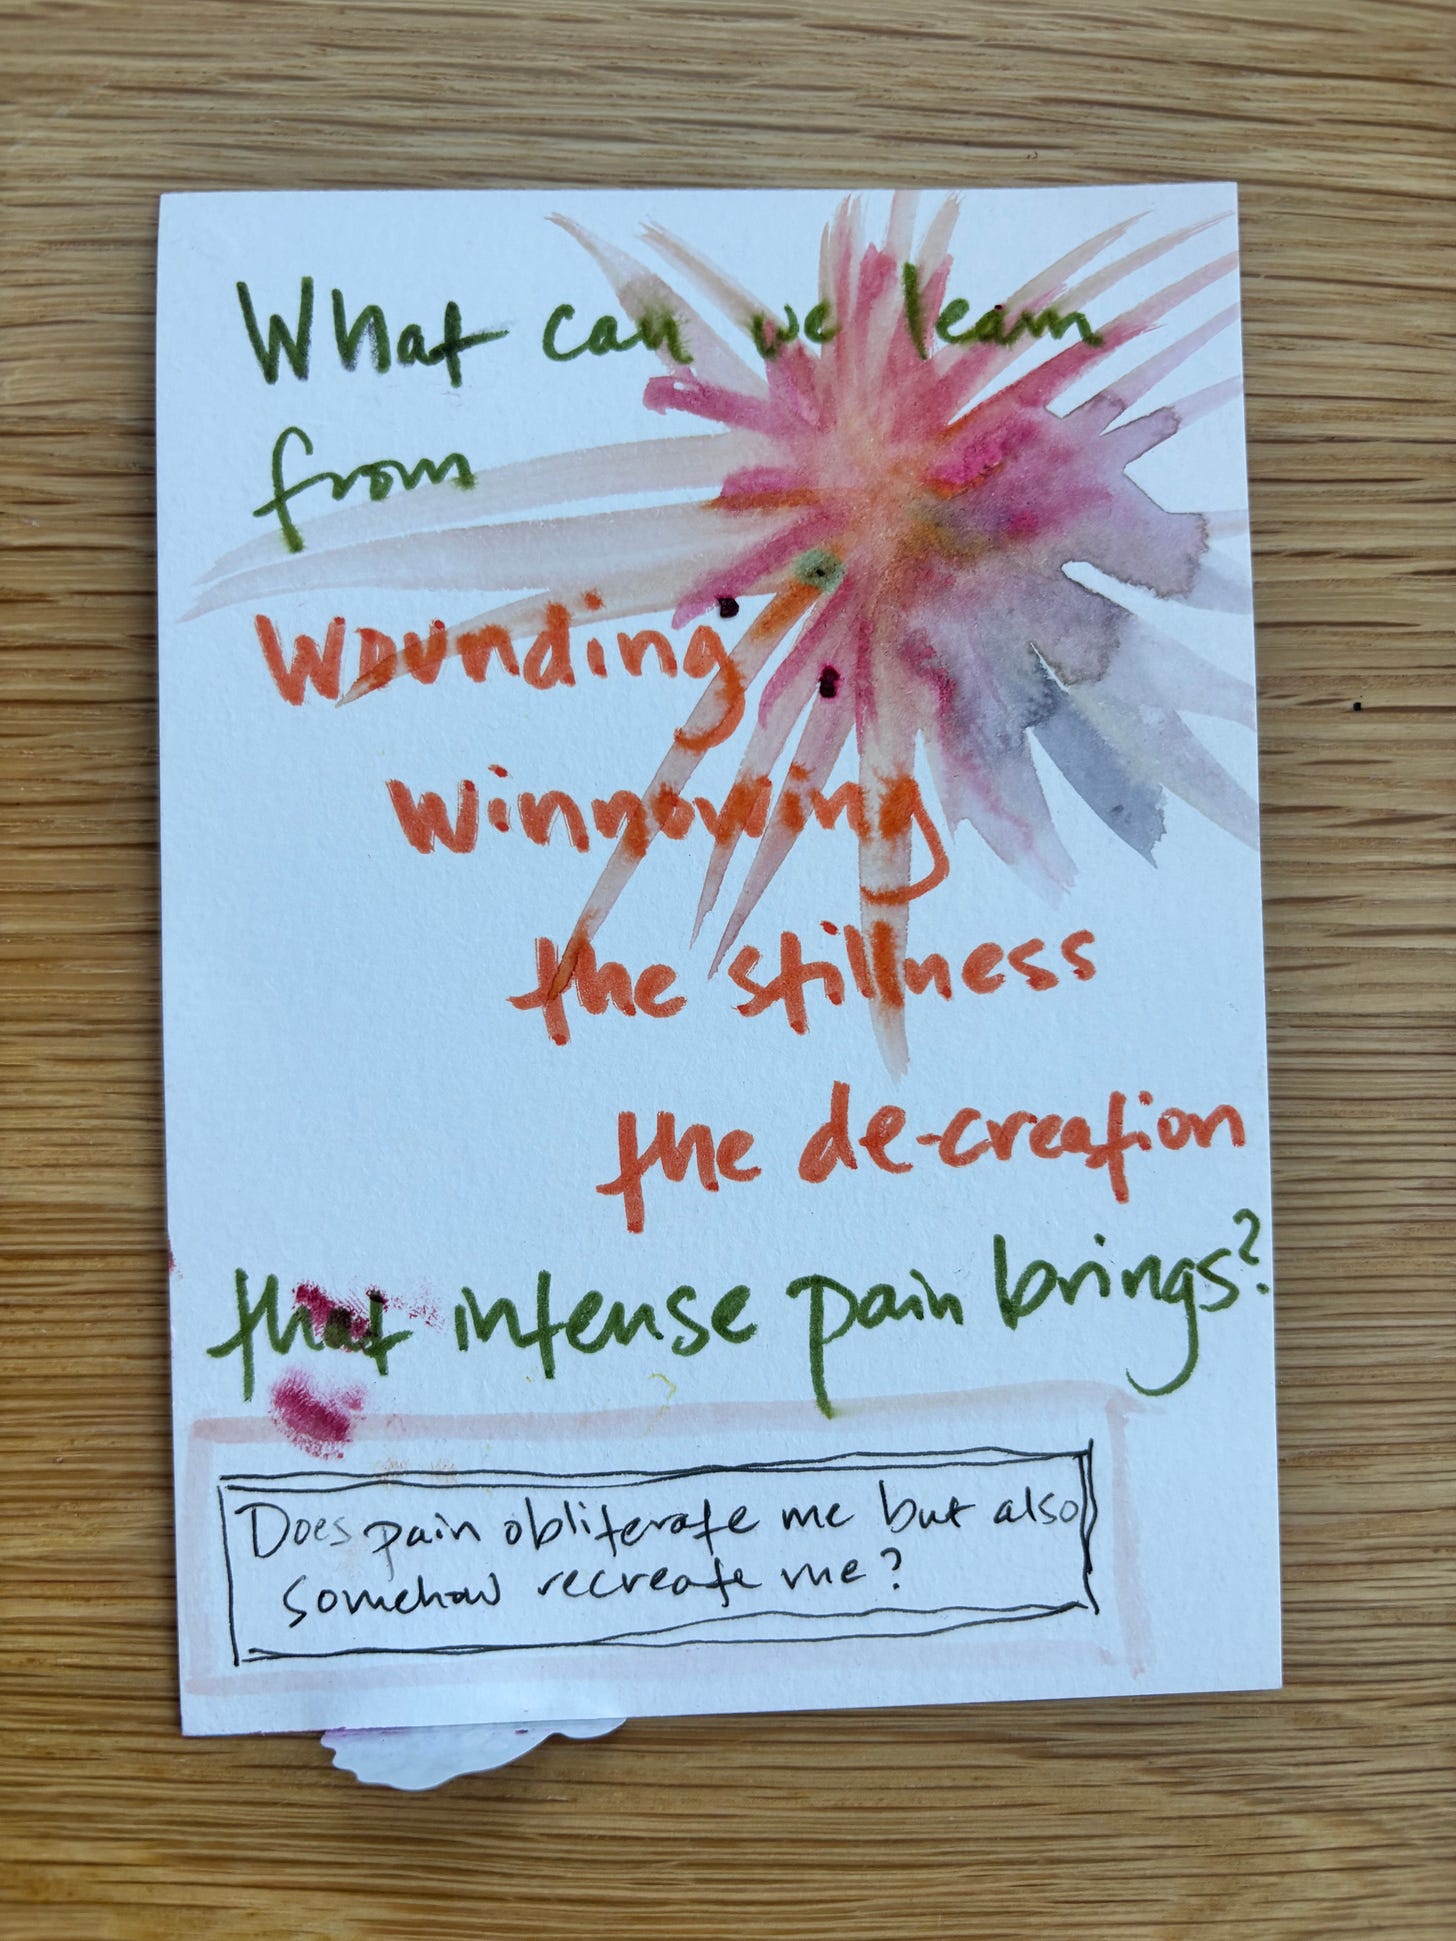 What can we learn
from
Wounding
winnowing
the stillness
the de-creation
that intense pain brings?
Does pain obliterate me but also
somehow recreate me?